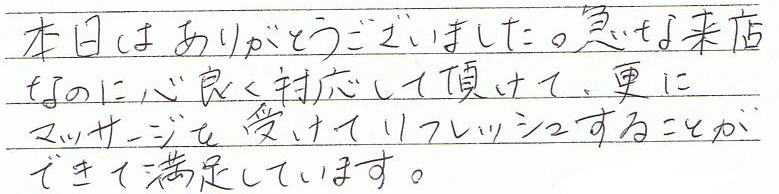 本日はありがとうございました。急な来店
なのに心良く対応して頂けて、更に
マッサージを受けてリフレッシュすることが
できて満足しています。